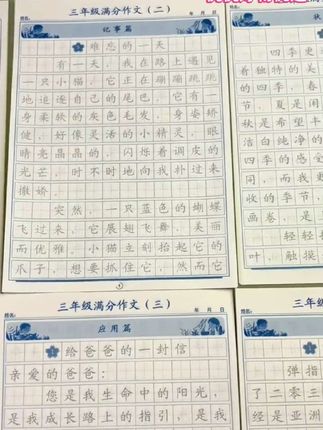 三年级满分作文（二）
姓名： 年 月 日
记事篇
难忘的一天
有一天，我在路上遇见
一只小猫，它正在蹦蹦跳跳
地追逐自己的尾巴，它有一
身柔软的灰色毛发，身姿矫
健，好像灵活的小精灵，眼
睛亮晶晶的，闪烁着调皮的
光芒，时不时地向我扑过来
撒娇。
突然，一只蓝色的蝴蝶
飞过来，它展翅飞舞，美丽
而优雅。小猫立刻抬起它的
爪子，想要抓住它，然而它
状
四季更
着独特的美
的季节，春
节，夏是闲
秋是希望丰
洁白纯净的
四季的感
同，而我更
收的季节，
画卷，是
轻轻
叶，触摸
三年级满分作文（三）
姓名： 年 月 日
应用篇
给爸爸的一封信
亲爱的爸爸：
您是我生命中的阳光，
是我成长路上的指引，是我
三
姓名：
弹指
了二零三
经是亚洲